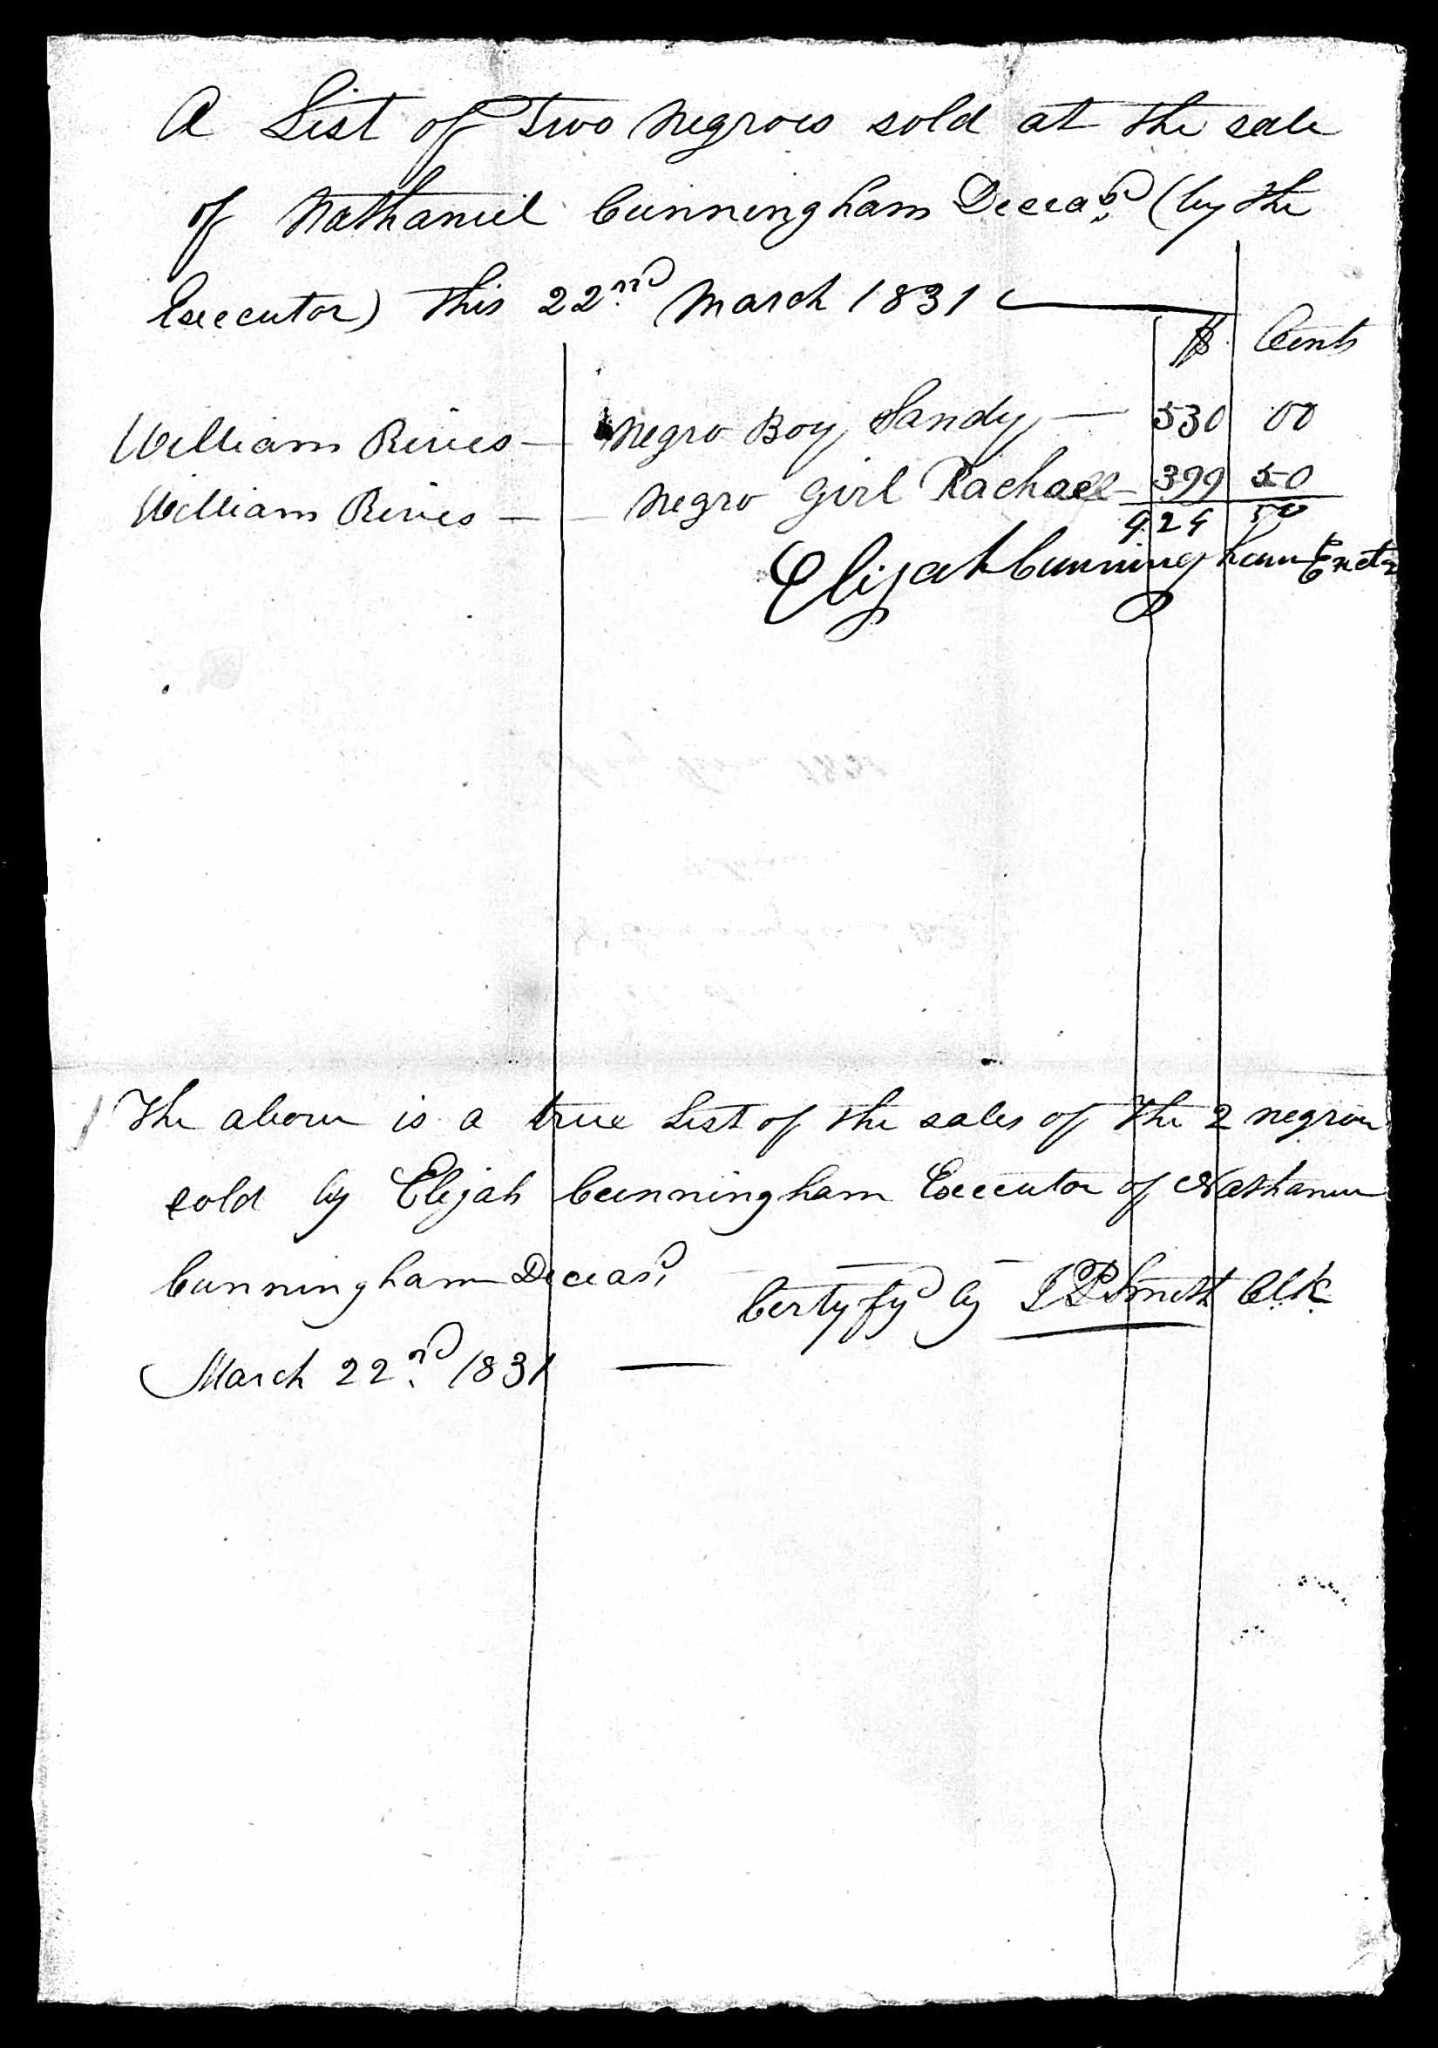 A List of Two Negroes sold at the sale
of Nathaniel Cunningham Deceasd (by the
Executor) this 22nd March 1831
$ Cents
William Rives — Negro Boy Sandy — 530 00
William Rives — Negro Girl Rachael — 399 50
929 50
Elijah Cunningham Exctr
The above is a true List of the sales of the 2 negroes
sold by Elijah Cunningham Executor of Nathaniel
Cunningham Deceasd
Certyfyd by J P Smith Clk
March 22nd 1831 —